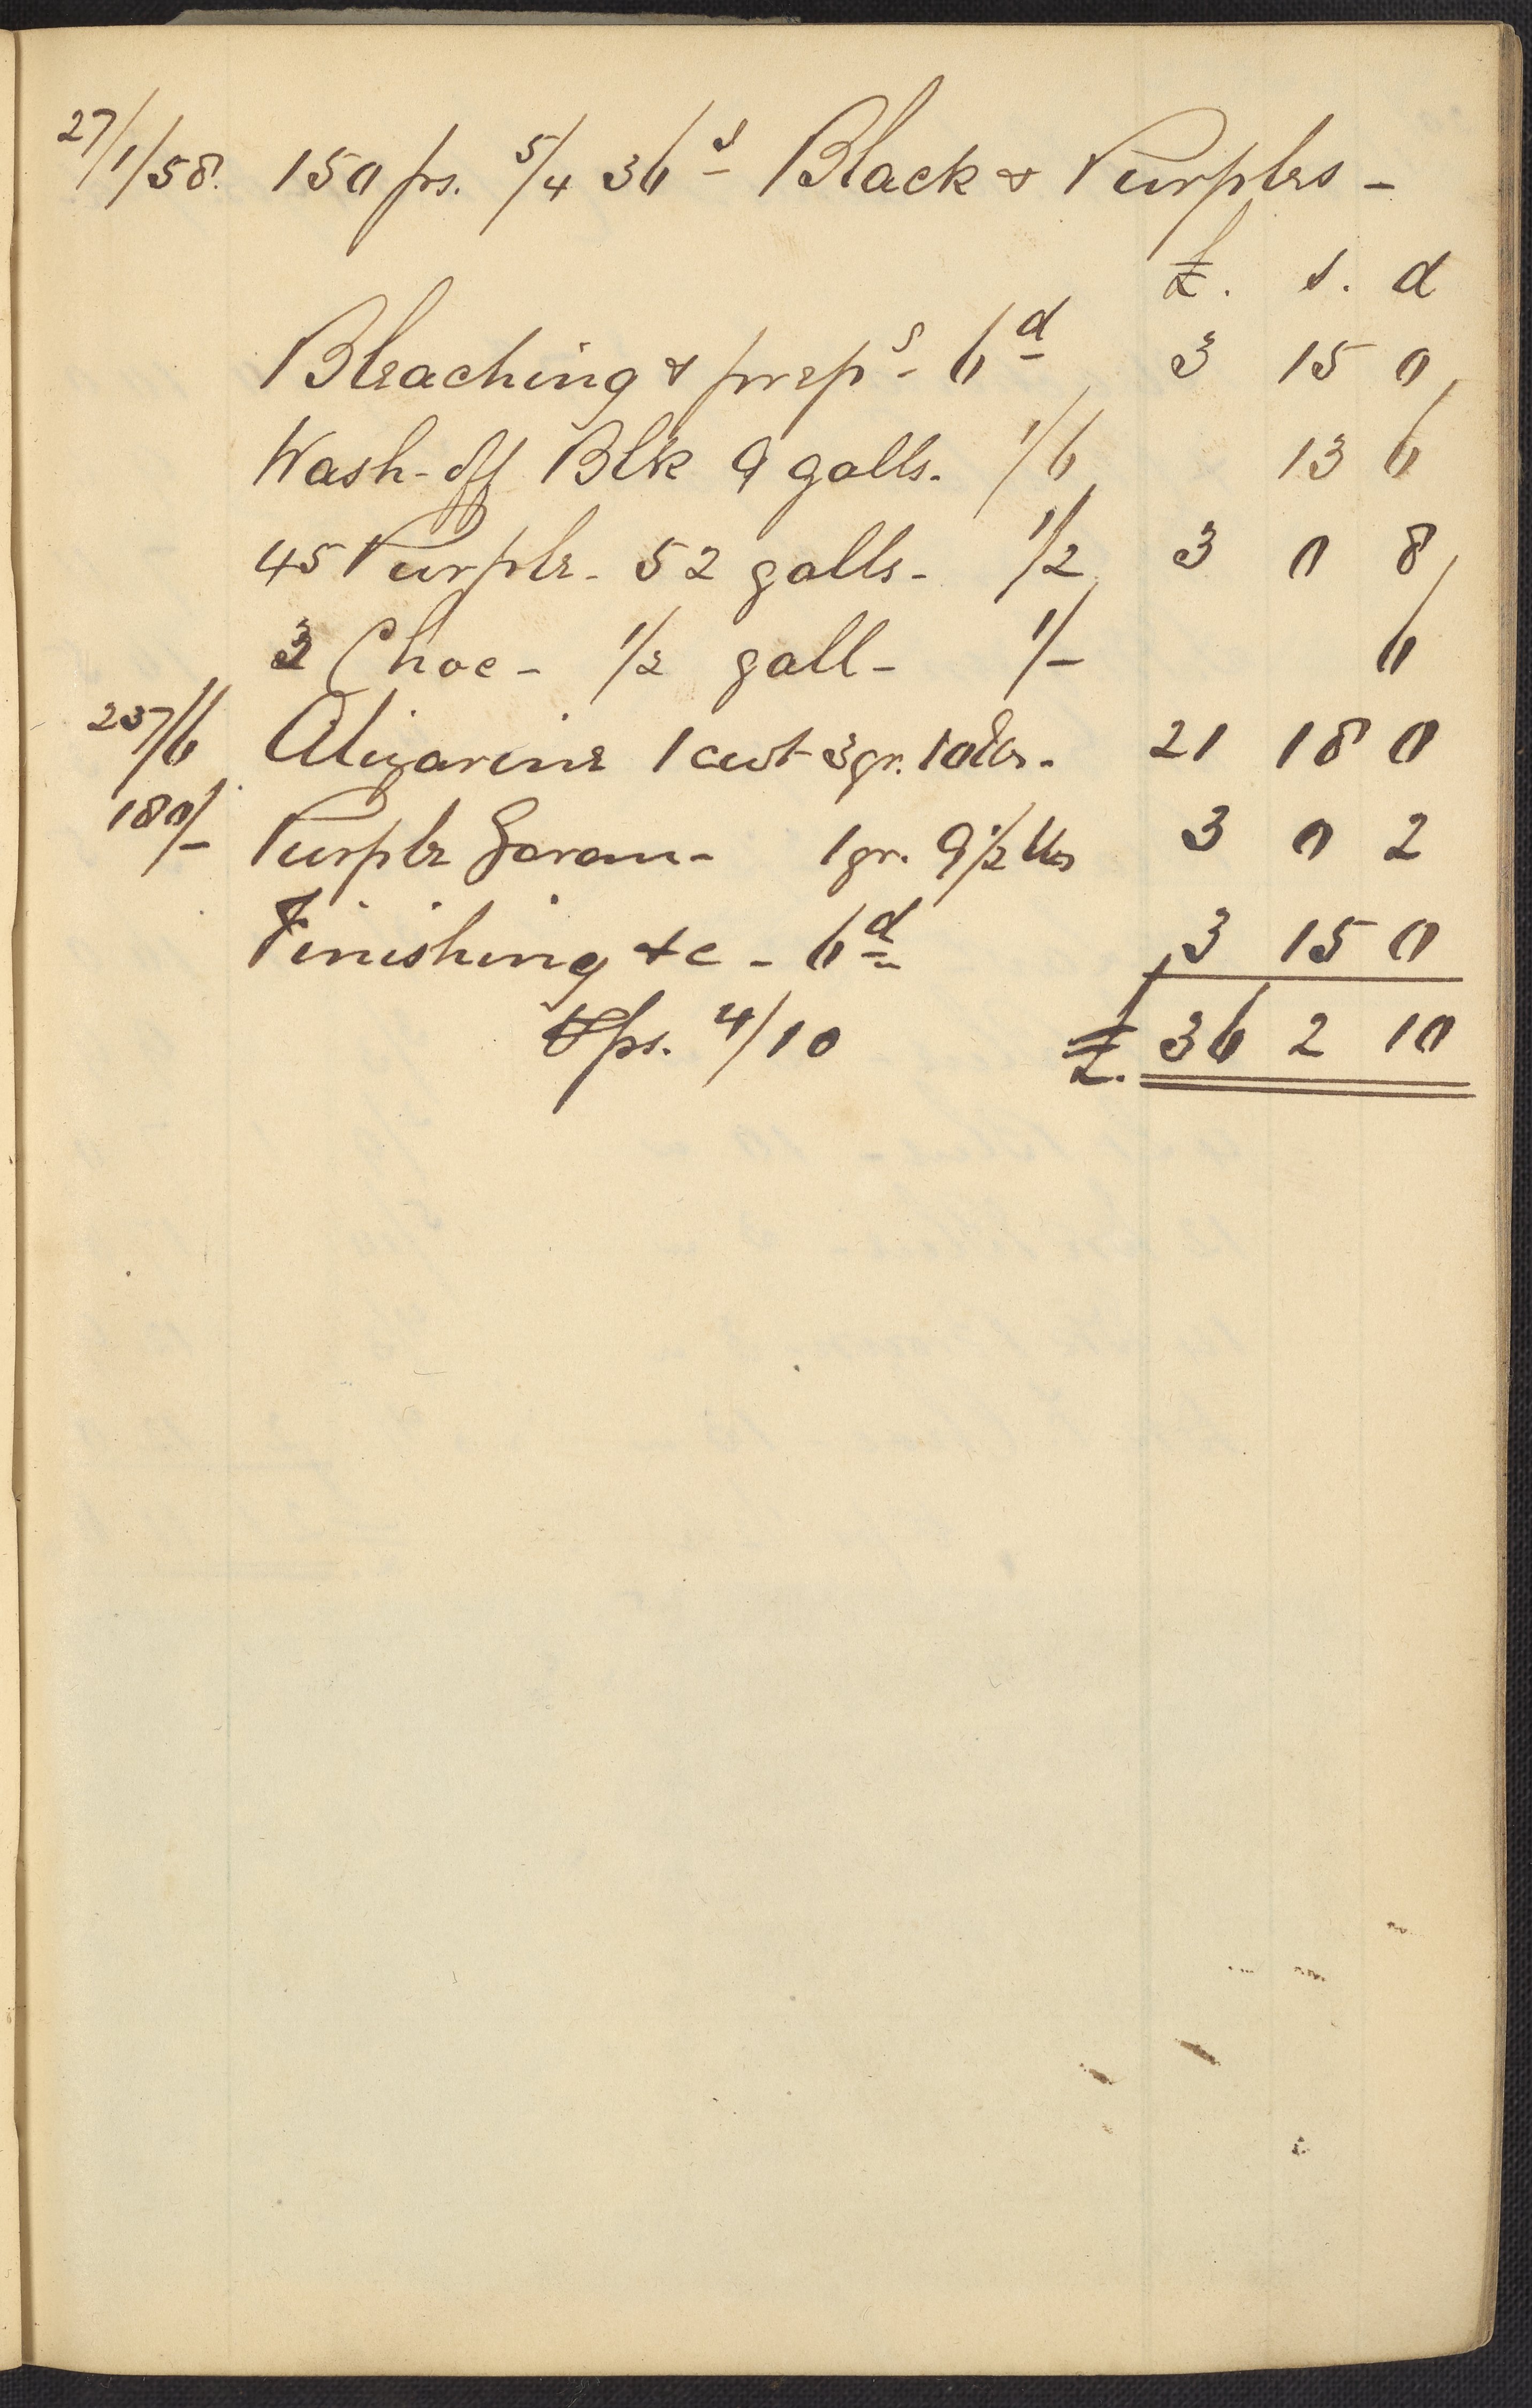 27/1/58. 150 ps. 5/4 36s Black & Purples -
£. s. d
Bleaching & preps - 6d 3 15 0
Wash-off Blk 9 galls. 1/6 13 6
45 Purple - 52 galls - 1/2 3 0 8
3 Choc - 1/2 gall - 1/- 6
237/6 Alizarine 1 cwt 3 qr. 10 lbs. 21 18 0
180/- Purple Garan - 1 qr. 9 1/2 lbs 3 0 2
Finishing &c - 6d 3 15 0
ps. 4/10 £. 36 2 10